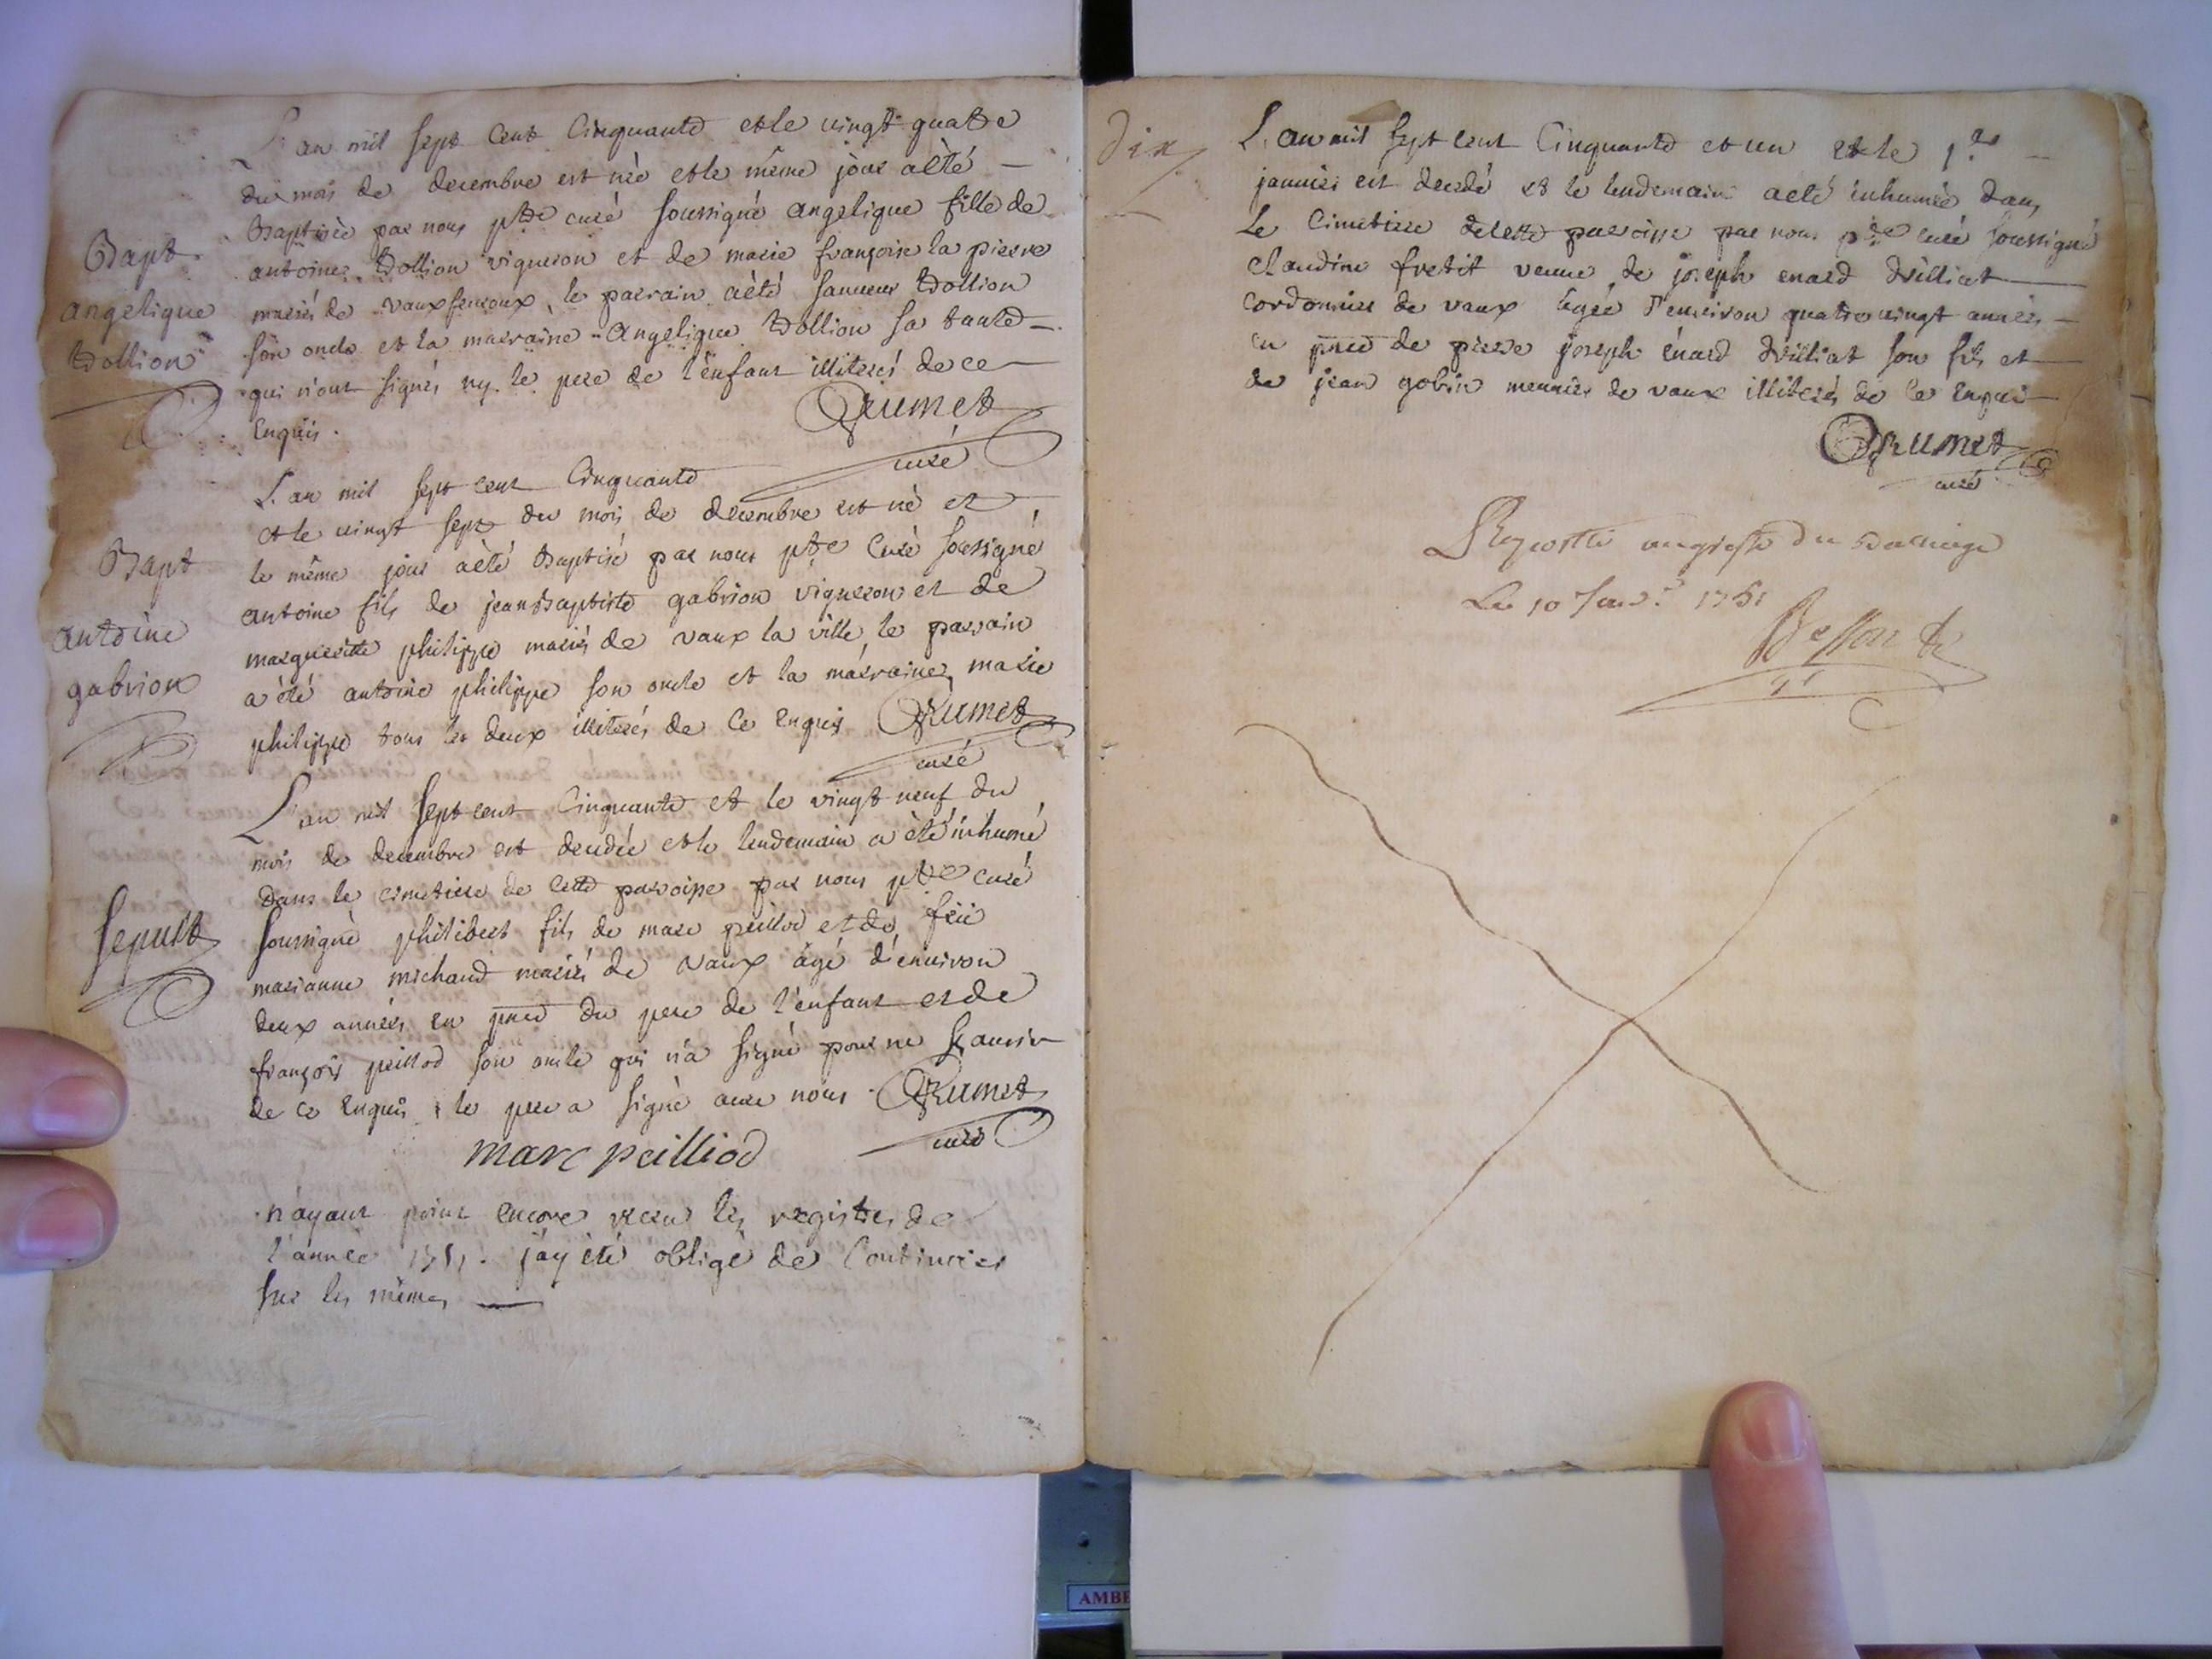 L'an mil sept cent Cinquante et le vingt quatre
du mois de decembre est née et le même jour a èté —
Baptisée par nous ptre curé soussigné angelique fille de
antoine Dollion vigneron et de marie françoise la pierre
mariés de vauxfevroux, le parrain a èté Dollion
son oncle et la marraine Angelique Dollion sa tante —
qui n'ont signés ny le pere de l'enfant illiterés de ce —
Enquis.
Bapt
angelique
Dollion
Rumet
curé
L'an mil sept cent Cinquante
et le vingt sept du mois de decembre est né et
le même jour a èté Baptisé par nous ptre Curé soussigné
antoine fils de jean Baptiste gabrion vigneron et de
margueritte philippe mariés de vaux la ville, le parrain
a èté antoine philippe son oncle et la marraine marie
philippe tous les deux illiterés de ce Enquis
Bapt
antoine
gabrion
Rumet
curé
L'an mil sept cent Cinquante et le vingt neuf du
mois de decembre est decedée et le lendemain a èté inhumé
dans le cimetiere de cette parroisse par nous ptre curé
soussignè philibert fils de marc peillod et de feüe
marianne michaud mariés de vaux âgé d'environ
deux années en pnce du pere de l'enfant et de
françois peillod son oncle qui n'a signé pour ne sçauoir
de ce Enquis, le pere a signè auec nous.
Sepult
Rumet
curé
marc peilliod
n'ayant point encore receu les registres de
l'année 1751. j'ay èté obligé de Continuer
sur les mêmes —
dix
L'an mil sept cent Cinquante et un et le 1er —
janvier est decedé et le lendemain a èté inhumée dans
le Cimetiere de cette parroisse par nous ptre curé soussigné
Claudine fretit veuue de joseph enard —
cordonnier de vaux agée d'environ quatre vingt années —
en pnce de pierre joseph énard son fils et —
de jean gobin meunier de vaux illiterés de ce Enquis —
Rumet
curé
Raporté au greffe du Balliage
Le 10 Janv.r 1751